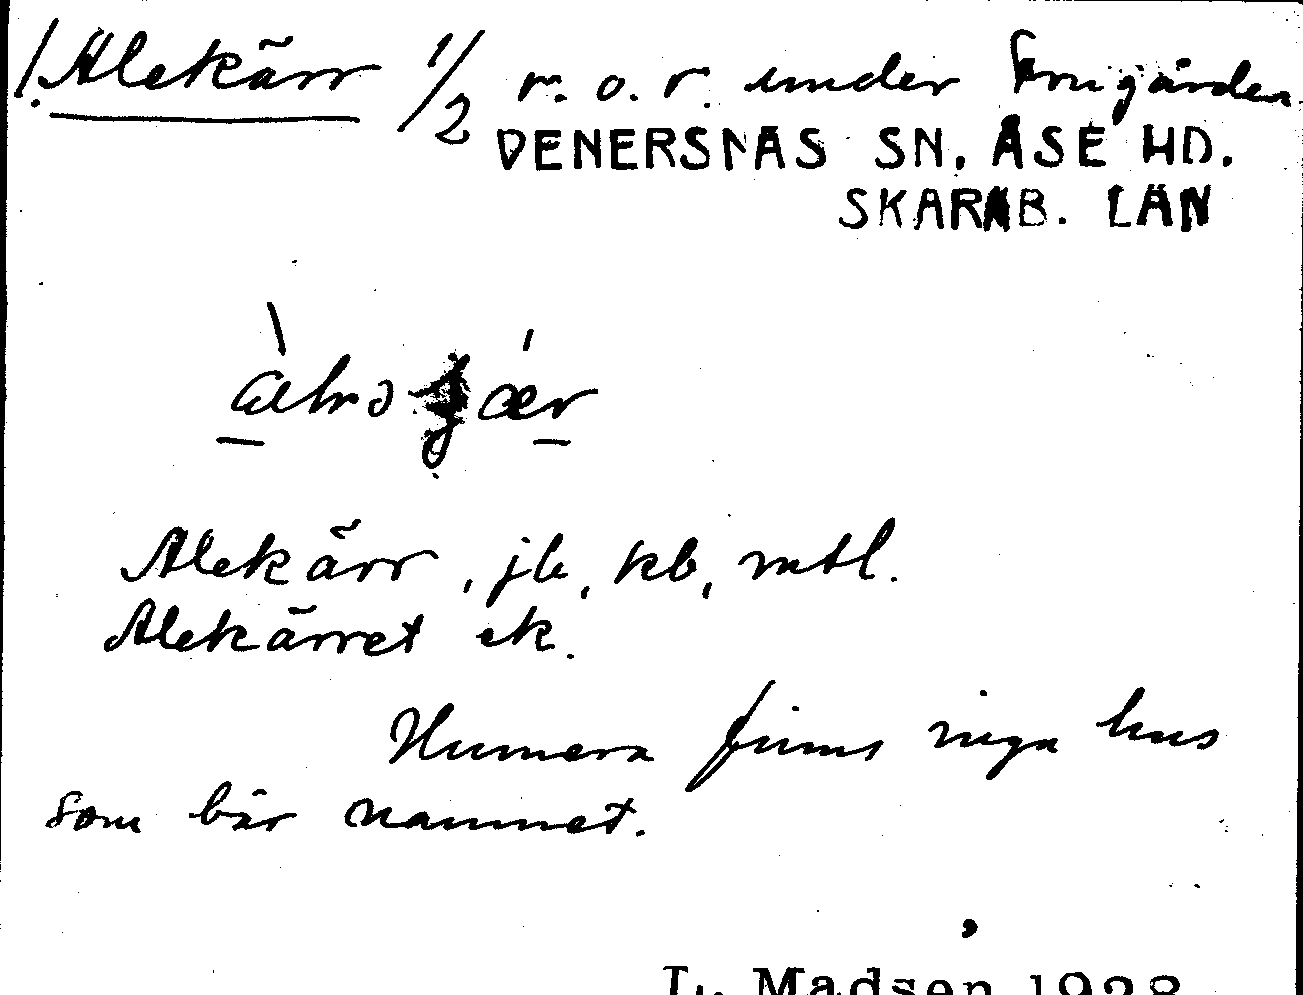 1. Alekärr 1/2 r. o. r. under Frugården
VENERSNÄS SN, ÅSE HD.
SKARAB. LÄN
Alekärr, jb, kb, mtl.
Alekärret ek.
Numera finns inga hus
som bär namnet.
L. Madsen 1928